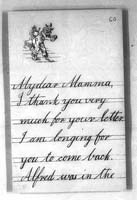 60
Mydear Mamma,
I thank you very
much for your letter
I am longing for
you to come back.
Alfred was in the